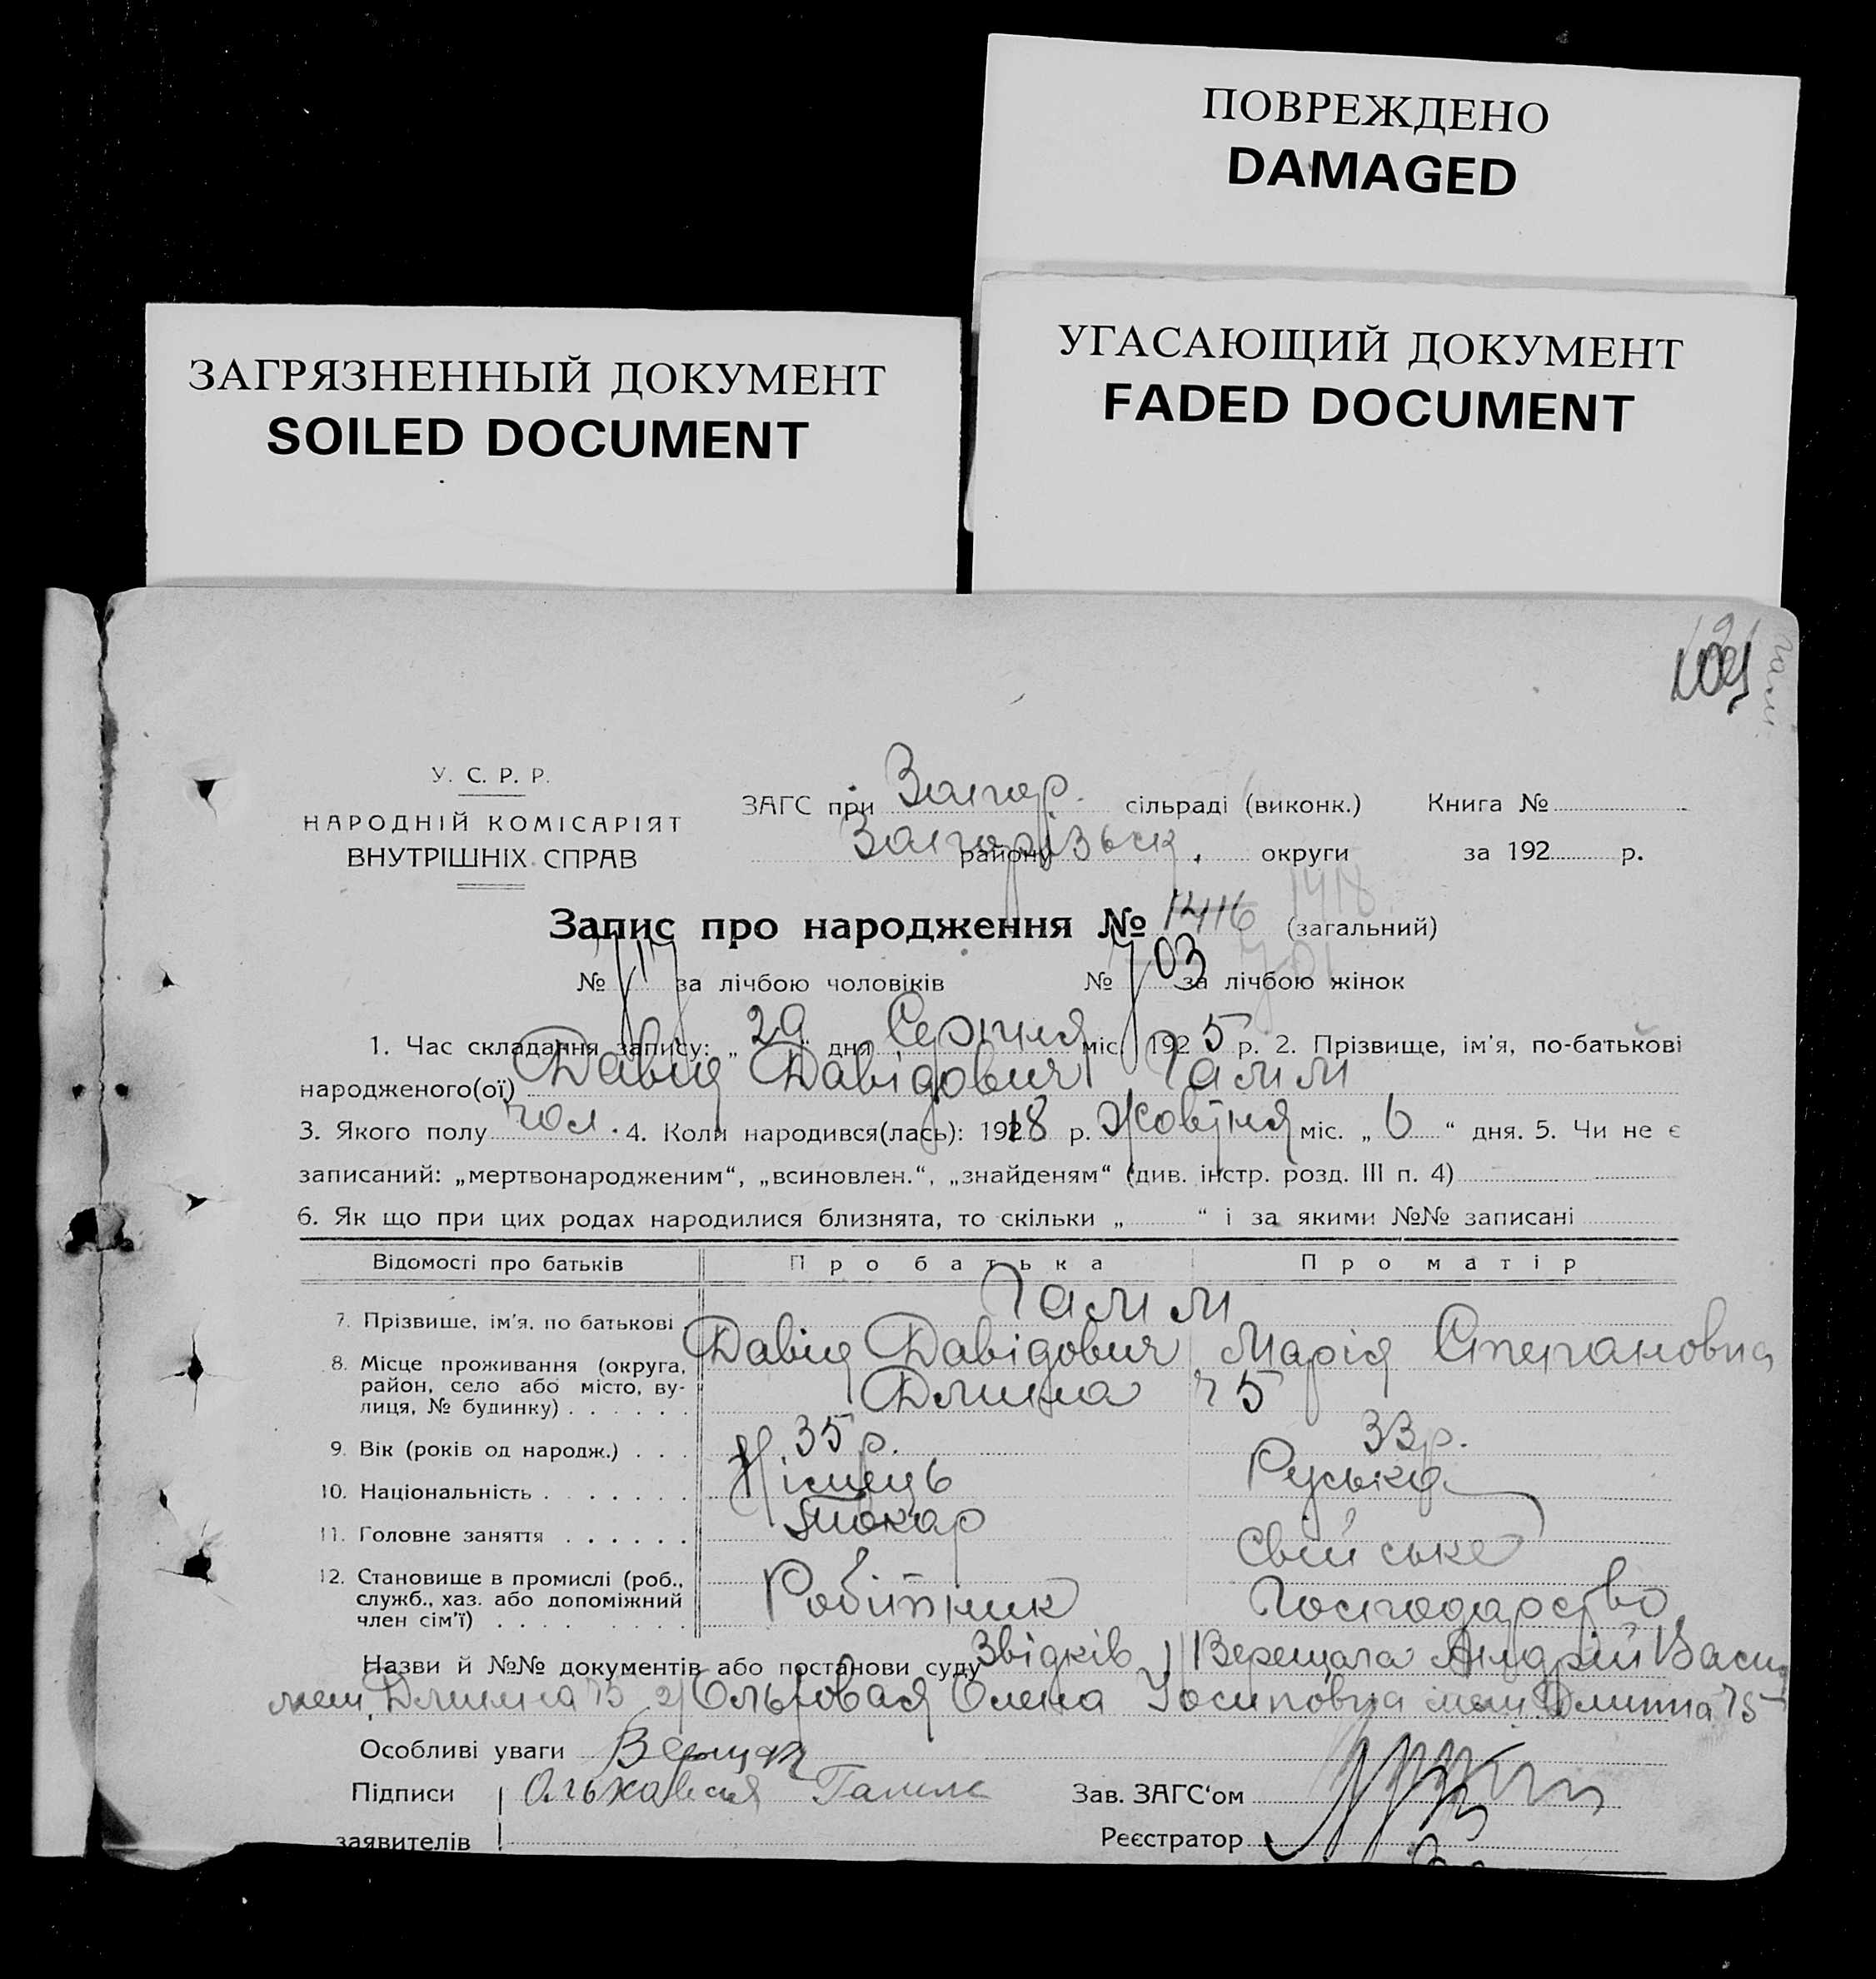 ПОВРЕЖДЕНО
DAMAGED
ЗАГРЯЗНЕННЫЙ ДОКУМЕНТ
SOILED DOCUMENT
УГАСАЮЩИЙ ДОКУМЕНТ
FADED DOCUMENT
У. С. Р. Р.
НАРОДНІЙ КОМІСАРІЯТ
ВНУТРІШНІХ СПРАВ
ЗАГС при Запор. сільраді (виконк.) Книга №
Запорізьк. району округи за 192 р.
Запис про народження № 1416 1418 (загальний)
№ 717 за лічбою чоловіків № 703 701 за лічбою жінок
1. Час складання запису: „29“ дня Серпня міс. 1925 р. 2. Прізвище, ім'я, по-батькові
народженого(ої) Давід Давідович Гамм
3. Якого полу чол. 4. Коли народився(лась): 1918 р. Жовтня міс. „6“ дня. 5. Чи не є
записаний: „мертвонародженим“, „всиновлен.“, „знайденям“ (див. інстр. розд. III п. 4)
6. Як що при цих родах народилися близнята, то скільки „ “ і за якими №№ записані
Відомості про батьків Про батька Про матір
7. Прізвище, ім'я, по батькові Гамм
Давід Давідович Марія Степановна
8. Місце проживання (округа, район, село або місто, вулиця, № будинку) Длинна 75
9. Вік (років од народж.) 35 р. 33 р.
10. Національність Німець Руська
11. Головне заняття Токар Свійське
12. Становище в промислі (роб., служб., хаз. або допоміжний член сім'ї) Робітник Господарство
Назви й №№ документів або постанови суду Звідків 1) Верещага Андрій Васи
меш. Длинна 75 2) Ольховая Олена Йосиповна меш. Длинна 75
Особливі уваги
Підписи Ольховая Гамм Зав. ЗАГС'ом
заявителів Реєстратор